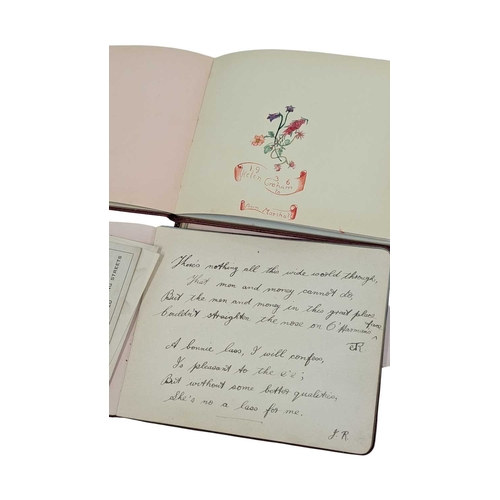 19 36
Helen Graham
to
Marshall
D STREETS
There's nothing all this wide world through,
That men and money cannot do,
But the men and money in this great place
Couldn't straighten the nose on O'Hannan's face
J.R
A bonnie lass, I will confess,
Is pleasant to the e'e;
But without some better qualities,
She's no a lass for me.
J. R